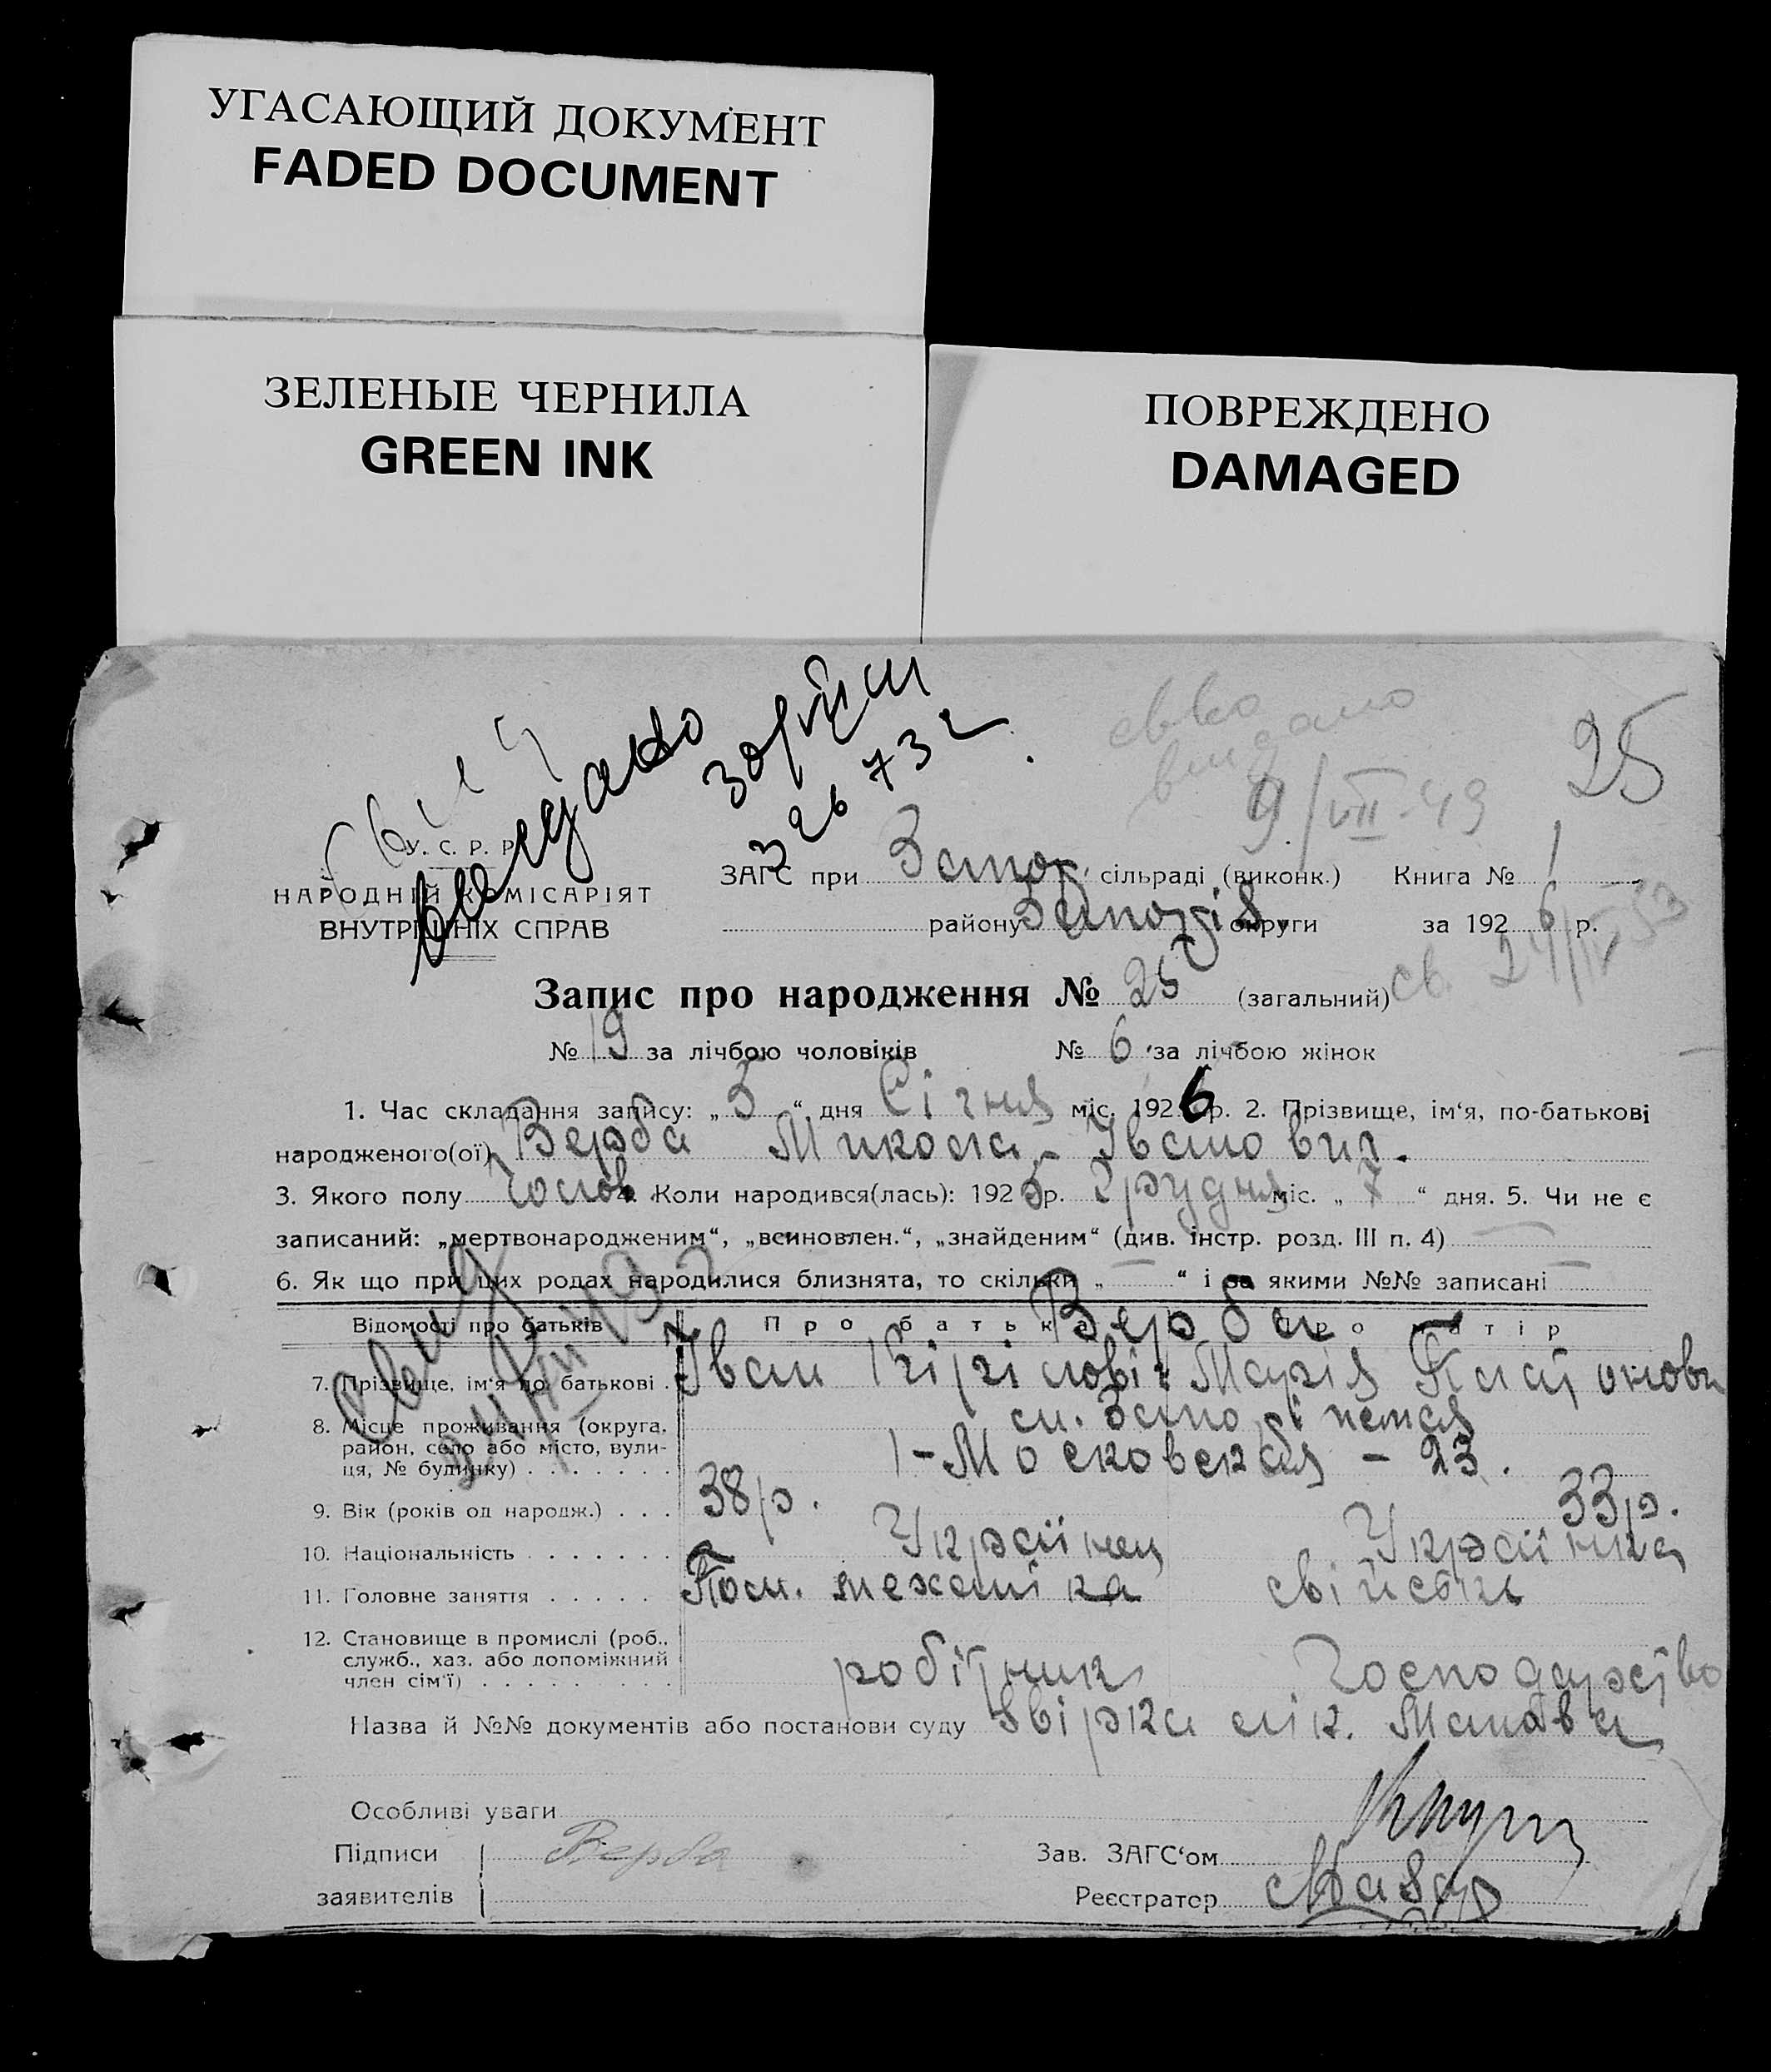 УГАСАЮЩИЙ ДОКУМЕНТ
FADED DOCUMENT
ЗЕЛЕНЫЕ ЧЕРНИЛА
GREEN INK
ПОВРЕЖДЕНО
DAMAGED
видано
326732
видано
9/VII-49
25
У. С. Р. Р.
НАРОДНІЙ КОМІСАРІЯТ
ВНУТРІШНІХ СПРАВ
ЗАГС при Запор. сільраді (виконк.) Книга № 1
району Запоріз. округи за 1926 р.
св. 24/IV 53
Запис про народження № 25 (загальний)
№ 19 за лічбою чоловіків № 6 за лічбою жінок
1. Час складання запису: „ 5 “ дня Січня міс. 1926 р. 2. Прізвище, ім‘я, по-батькові
народженого(ої) Верба Микола Іванович.
3. Якого полу Чолов. 4. Коли народився(лась): 1925 р. Грудня міс. „ 7 “ дня. 5. Чи не є
записаний: „мертвонародженим“, „всиновлен.“, „знайденим“ (див. інстр. розд. III п. 4)
6. Як що при цих родах народилися близнята, то скільки „ — “ і за якими №№ записані —
Відомості про батьків Про батька Про матір
Верба
7. Прізвище, ім‘я по батькові . Іван Марія
8. Місце проживання (округа, район, село або місто, вулиця, № будинку) . . . . . . .
1-Московская - 23.
9. Вік (років од народж.) . . . 38 р. 33 р.
10. Національність . . . . . . . Українец Українка
11. Головне заняття . . . . . Пом. механіка
12. Становище в промислі (роб., служб., хаз. або допоміжний член сім‘ї) . . . . . . . . . робітник Господарство
Назва й №№ документів або постанови суду звірка лік.
Особливі уваги
Підписи Верба Зав. ЗАГС‘ом
заявителів Реєстратор